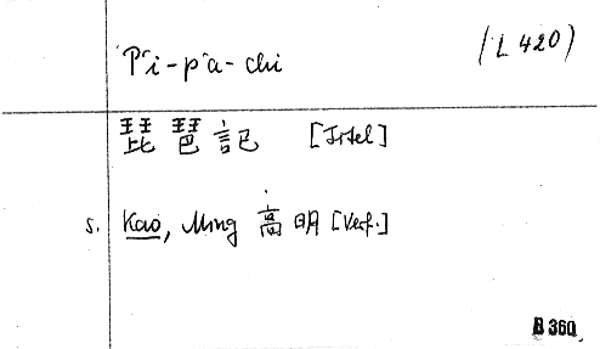 P'i-p'a-chi (L 420)
琵琶記 [Titel]
s. Kao, Ming 高明 [Verf.]
B 360